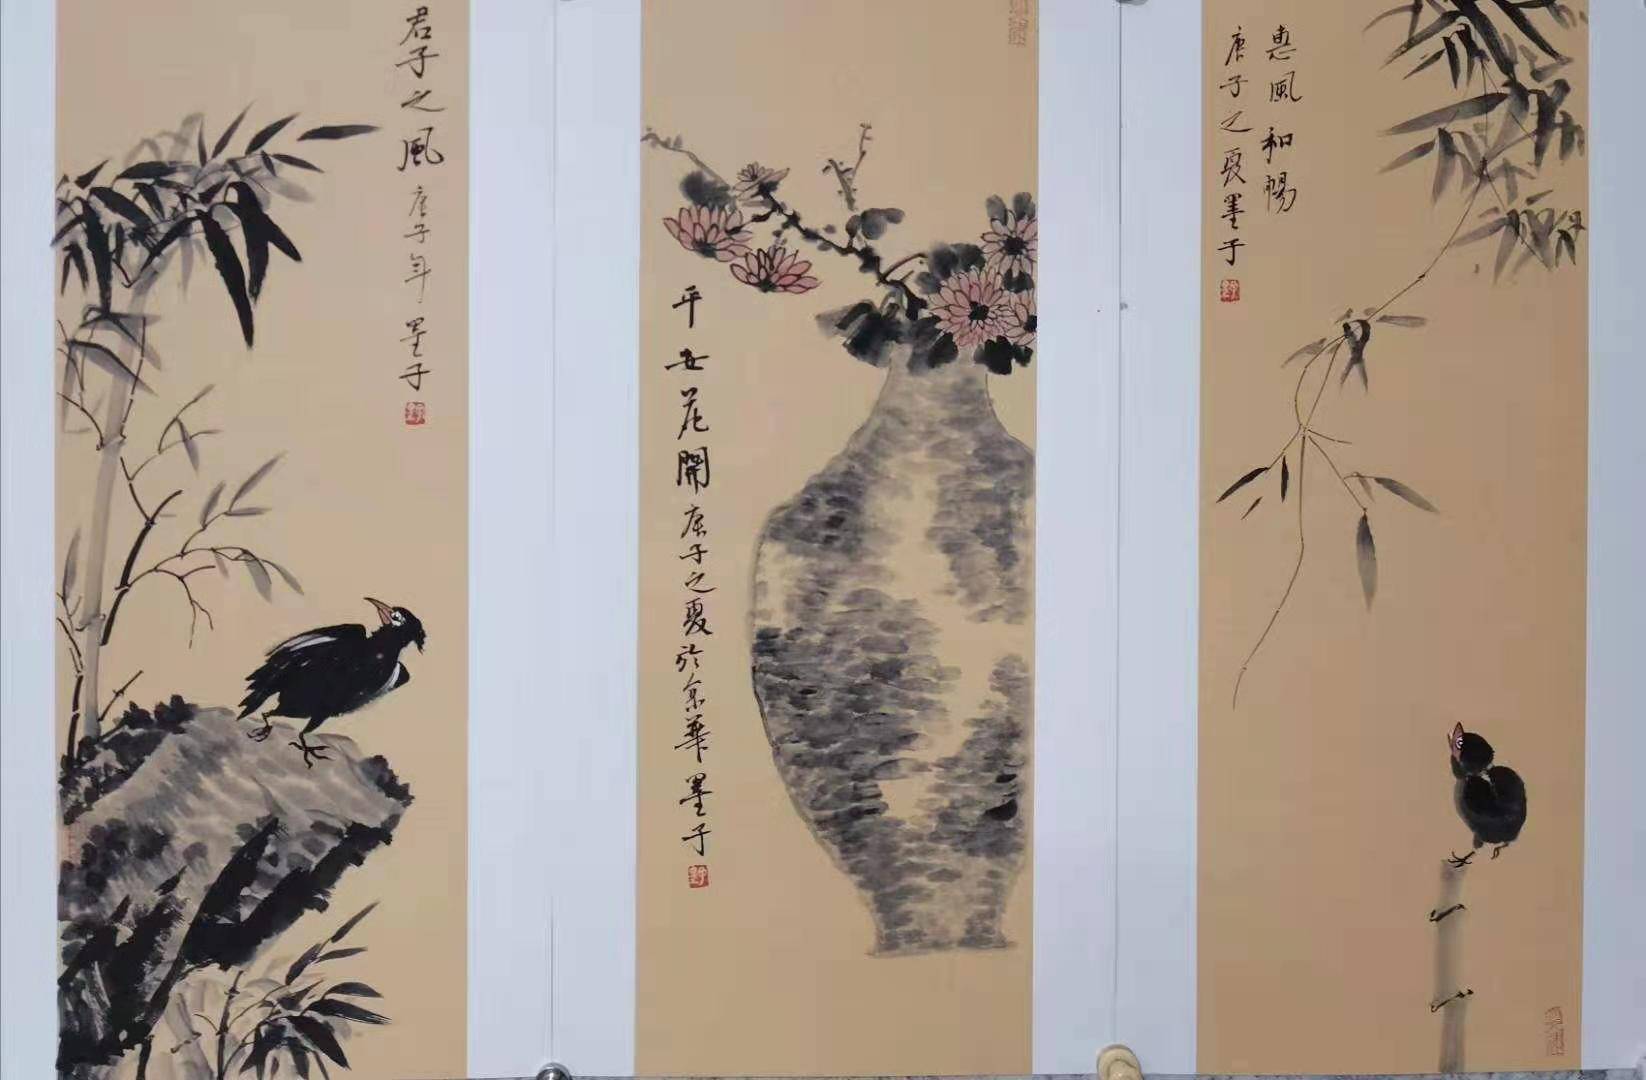 君子之風
庚子年 墨子
平安花開
庚子之夏於京華 墨子
惠風和暢
庚子之夏墨子